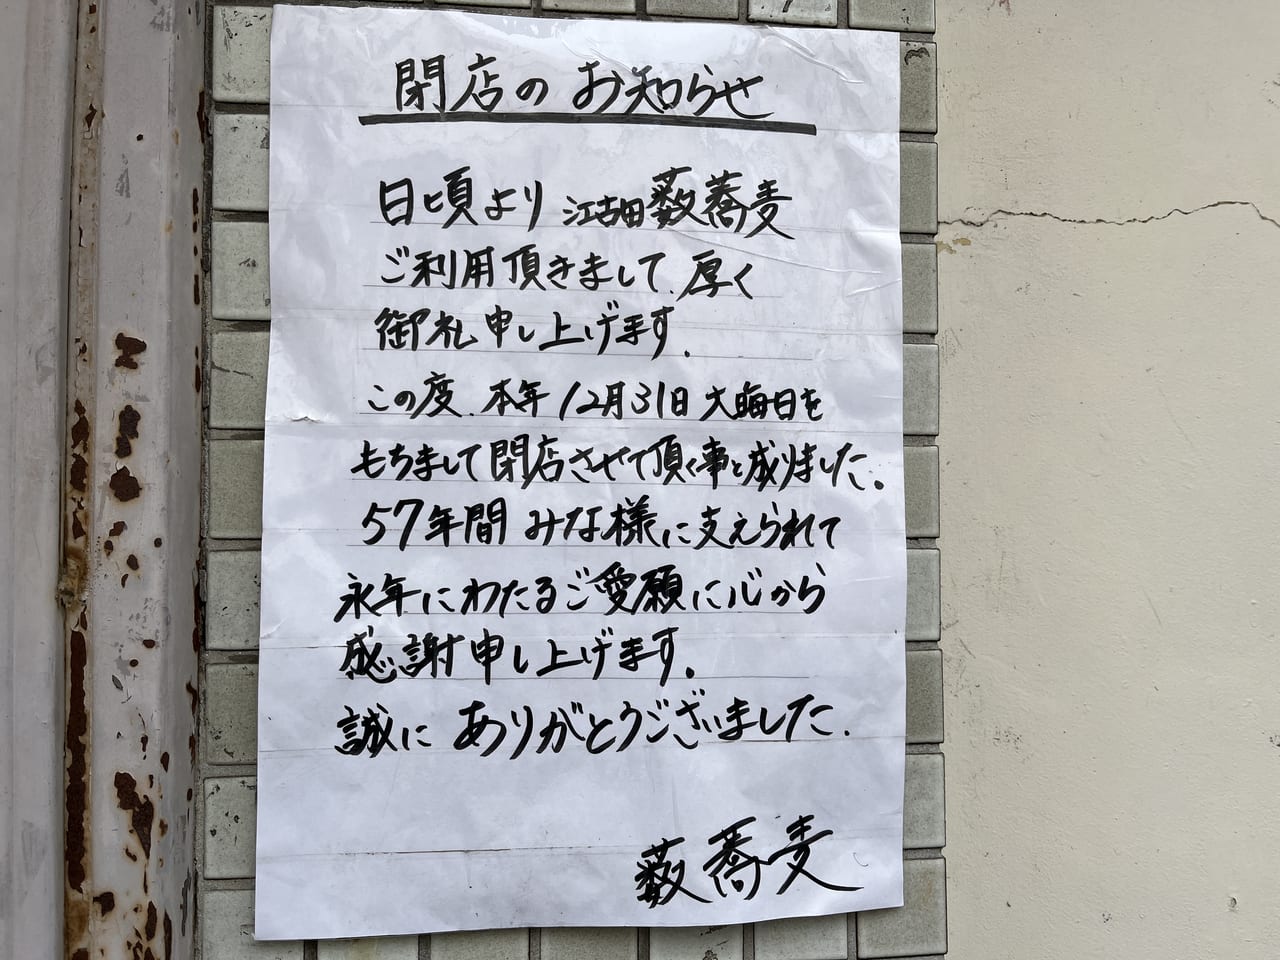 閉店のお知らせ
日頃より江古田藪蕎麦
ご利用頂きまして、厚く
御礼申し上げます。
この度、本年12月31日大晦日を
もちまして閉店させて頂く事と成りました。
57年間みな様に支えられて
永年にわたるご愛願に心から
感謝申し上げます。
誠にありがとうございました。
藪蕎麦